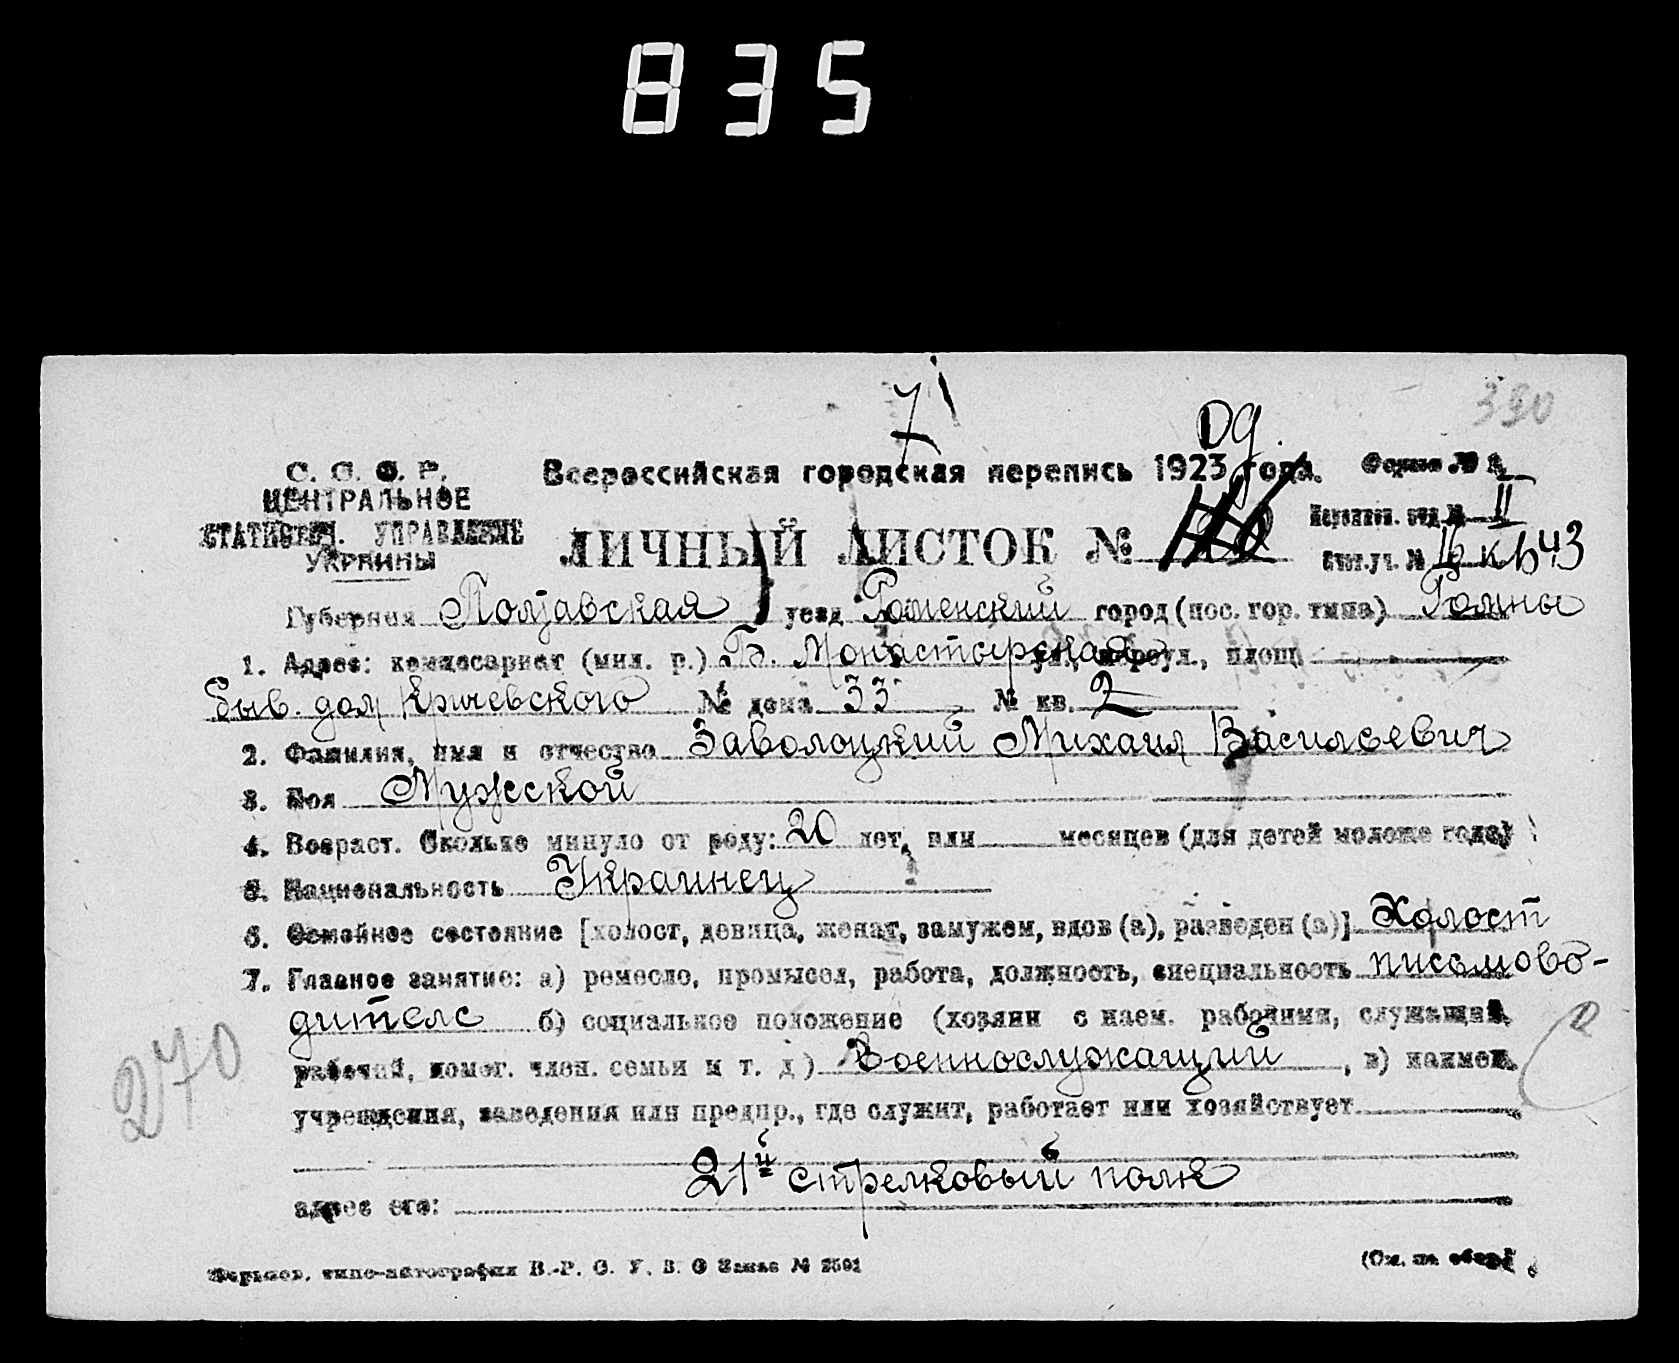 835
7
Од.
320
С. С. С. Р.
ЦЕНТРАЛЬНОЕ
СТАТИСТИЧ. УПРАВЛЕНИЕ
УКРАИНЫ
Всероссийская городская перепись 1923 года.
ЛИЧНЫЙ ЛИСТОК №
Форма №
II
Счет. уч. №
43
Губерния Полтавская уезд Роменский город (пос. гор. типа) Ромны
1. Адрес: комиссариат (мил. р.) Б. Монастырская ул., переул., площ.
Быв. дом Кричевского № дома 33 № кв. 2
2. Фамилия, имя и отчество Заволоцкий Михаил Васильевич
3. Пол Мужской
4. Возраст. Сколько минуло от роду: 20 лет, или месяцев (для детей моложе года)
5. Национальность Украинец
6. Семейное состояние [холост, девица, женат, замужем, вдов (а), разведен (а)] Холост
7. Главное занятие: а) ремесло, промысел, работа, должность, специальность письмово-
дитель б) социальное положение (хозяин с наем. рабочими, служащий,
рабочий, помог. член. семьи и т. д.) Военнослужащий, в) наимен.
учреждения, заведения или предпр., где служит, работает или хозяйствует
21й стрелковый полк
адрес его:
270
(См. на оборот